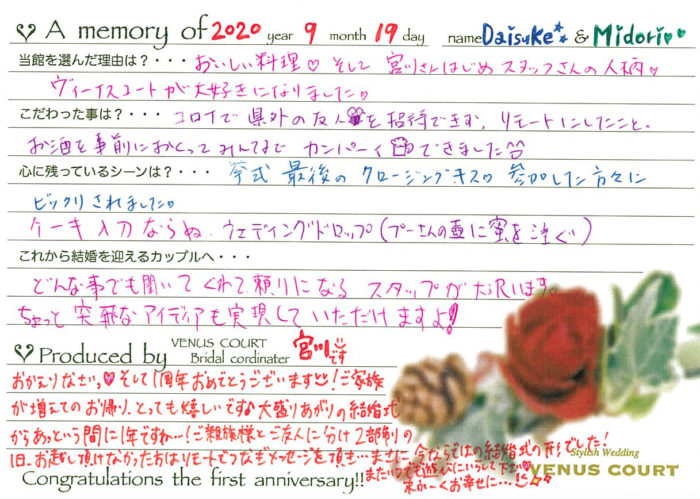 A memory of 2020 year 9 month 19 day name Daisuke & Midori
当館を選んだ理由は？・・・おいしい料理♡ そして 宮川さんはじめ スタッフさんの人柄♡
ヴィーナスコートが大好きになりました♡
こだわった事は？・・・コロナで県外の友人を招待できず、リモートにしたこと。
お酒を事前におくってみんなで カンパーイできました
心に残っているシーンは？・・・挙式 最後の クロージングキス♡ 参加した方々に
ビックリされました♡
ケーキ入刀ならぬ ウェディングドロップ（プーさんの壺に蜜を注ぐ）
これから結婚を迎えるカップルへ・・・
どんな事でも聞いてくれて、頼りになる スタッフが沢山います。
ちょっと 突飛なアイディアも実現していただけますよ!
Produced by VENUS COURT Bridal cordinater 宮川です
おかえりなさい♡そして1周年おめでとうございます!ご家族
が増えてのお帰り、とっても嬉しいですね 大盛りあがりの結婚式
からあっという間に1年ですね…!ご親族様とご友人に分け2部制の
1日、お越し頂けなかった方はリモートでつなぎメッセージを頂き…まさに今ならではの結婚式の形でした!
またいつでも遊びにいらして下さい♡
末永ーくお幸せに…!
Congratulations the first anniversary!!
Stylish Wedding
VENUS COURT